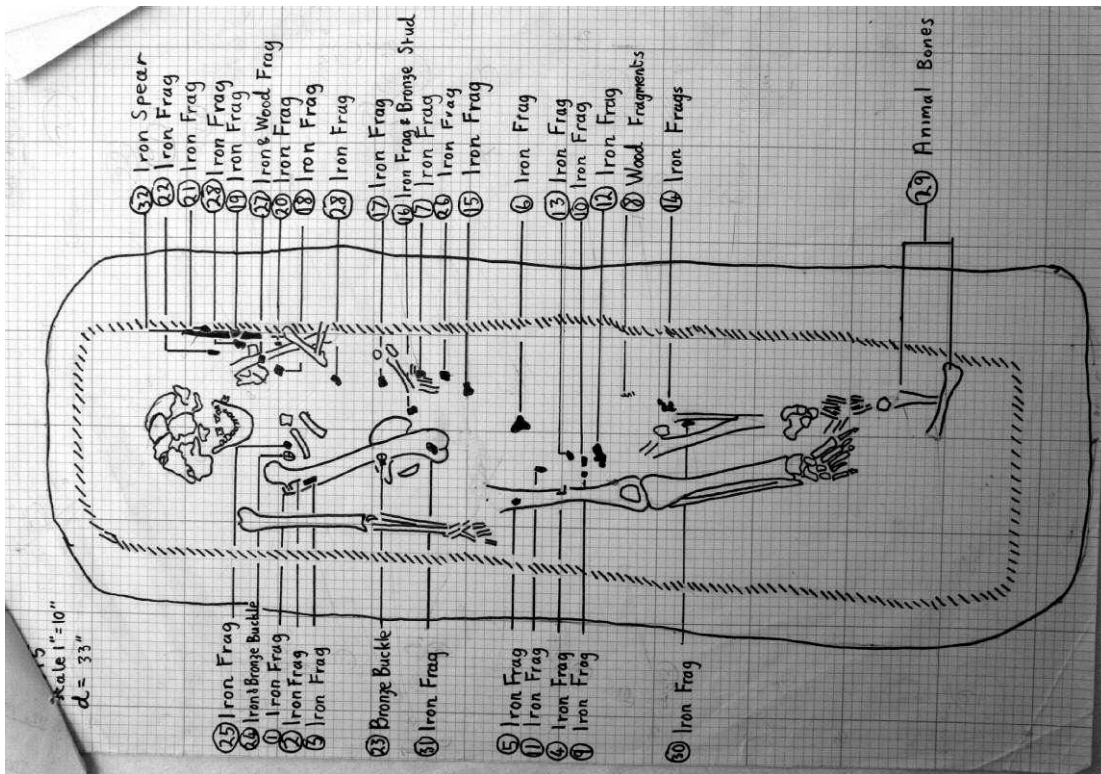 ㉜ Iron Spear
㉒ Iron Frag
㉑ Iron Frag
㉘ Iron Frag
⑲ Iron Frag
㉗ Iron & Wood Frag
⑳ Iron Frag
⑱ Iron Frag
㉘ Iron Frag
⑰ Iron Frag
⑯ Iron Frag & Bronze Stud
⑦ Iron Frag
㉖ Iron Frag
⑮ Iron Frag
⑥ Iron Frag
⑬ Iron Frag
⑩ Iron Frag
⑫ Iron Frag
⑧ Wood Fragments
⑭ Iron Frags
㉙ Animal Bones
㉕ Iron Frag
㉔ Iron & Bronze Buckle
① Iron Frag
② Iron Frag
③ Iron Frag
㉓ Bronze Buckle
㉛ Iron Frag
⑤ Iron Frag
⑪ Iron Frag
④ Iron Frag
⑨ Iron Frag
㉚ Iron Frag
1"=10"
d = 33"